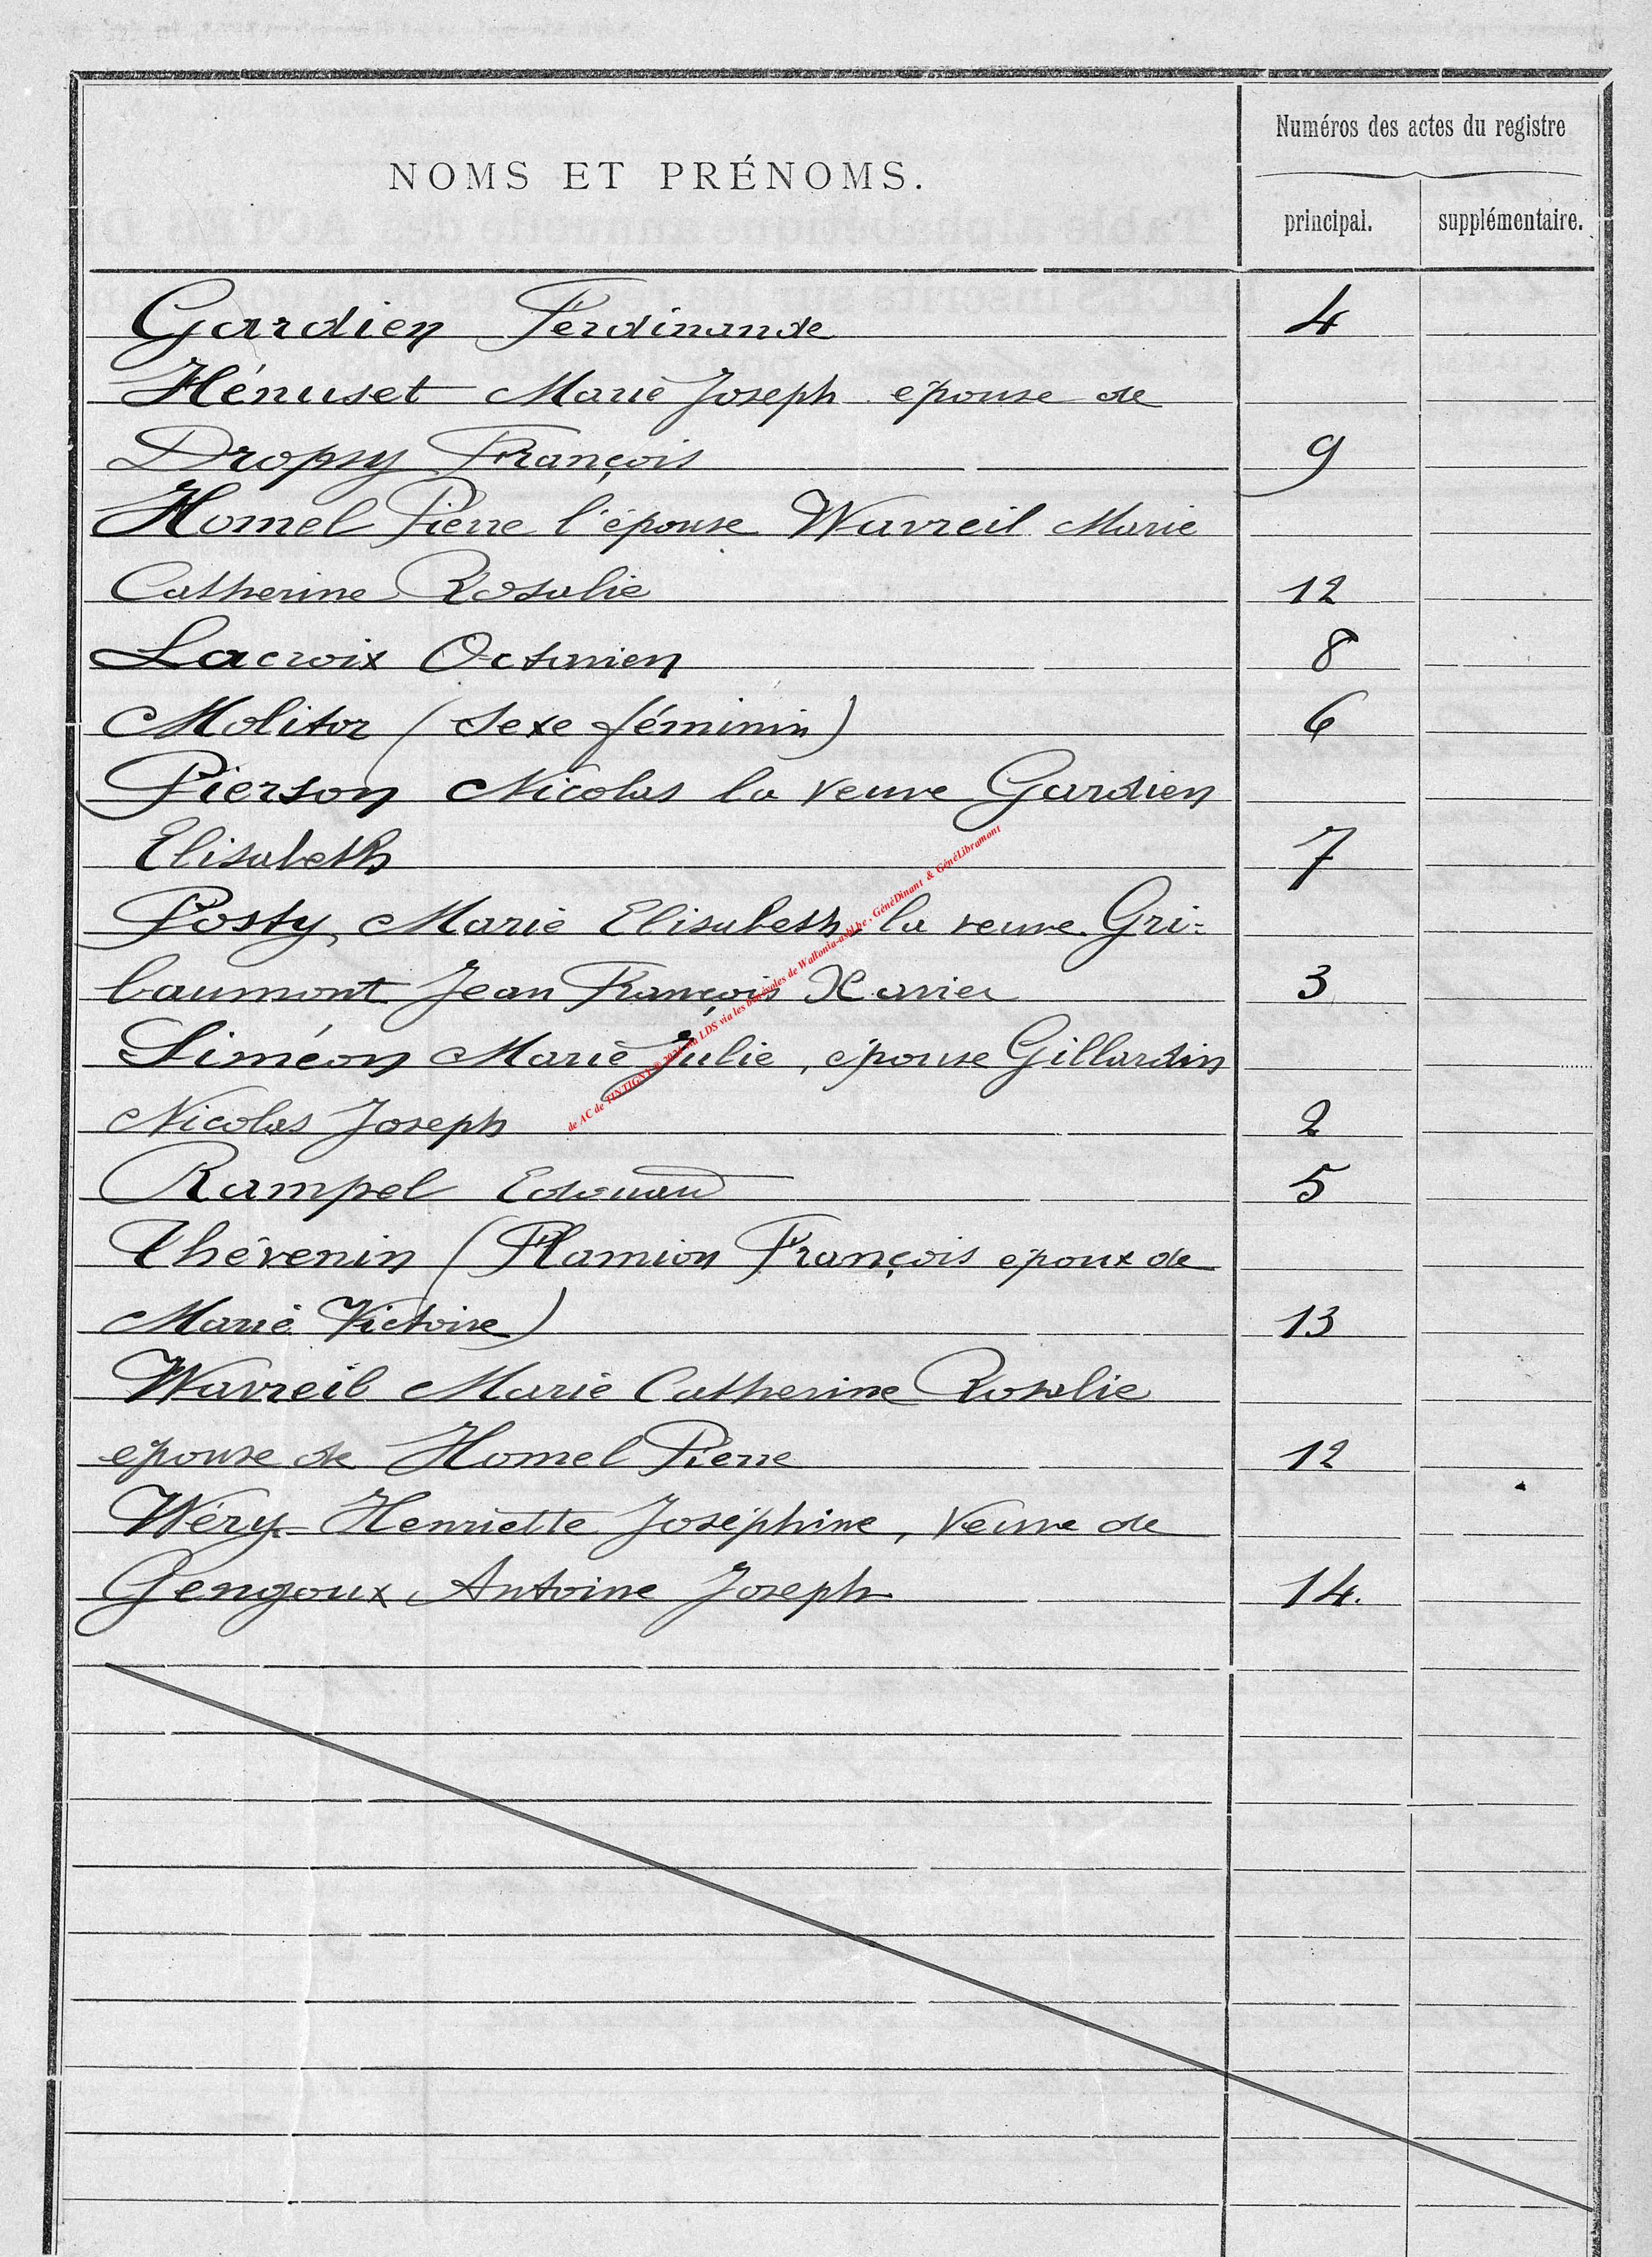 NOMS ET PRÉNOMS.
Numéros des actes du registre
principal.
supplémentaire.
Gardien Ferdinande 4
Hénuset Marie Joseph épouse de
Dropsy François 9
Homel Pierre l'épouse Wavreil Marie
Catherine Rosalie 12
Lacroix Octavien 8
Molitor (Sexe féminin) 6
Pierson Nicolas la veuve Gardien
Elisabeth 7
Posty Marie Elisabeth la veuve Gri-
baumont Jean François Xavier 3
Siméon Marie Julie, épouse Gillardin
Nicolas Joseph 2
Rampel Edouard 5
Thévenin (Flamion François époux de
Marie Victoire) 13
Wavreil Marie Catherine Rosalie
épouse de Homel Pierre 12
Wéry Henriette Joséphine, Veuve de
Gengoux Antoine Joseph 14.
de AC de TINTIGNY © 2024 via LDS via les bénévoles de Wallonia-asbl.be, GénéDinant & GénéLibramont